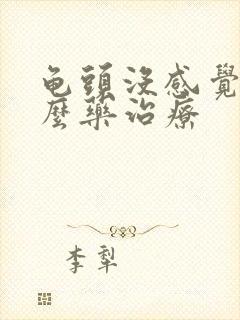 龟頭沒感覺
麼藥治療
李犁